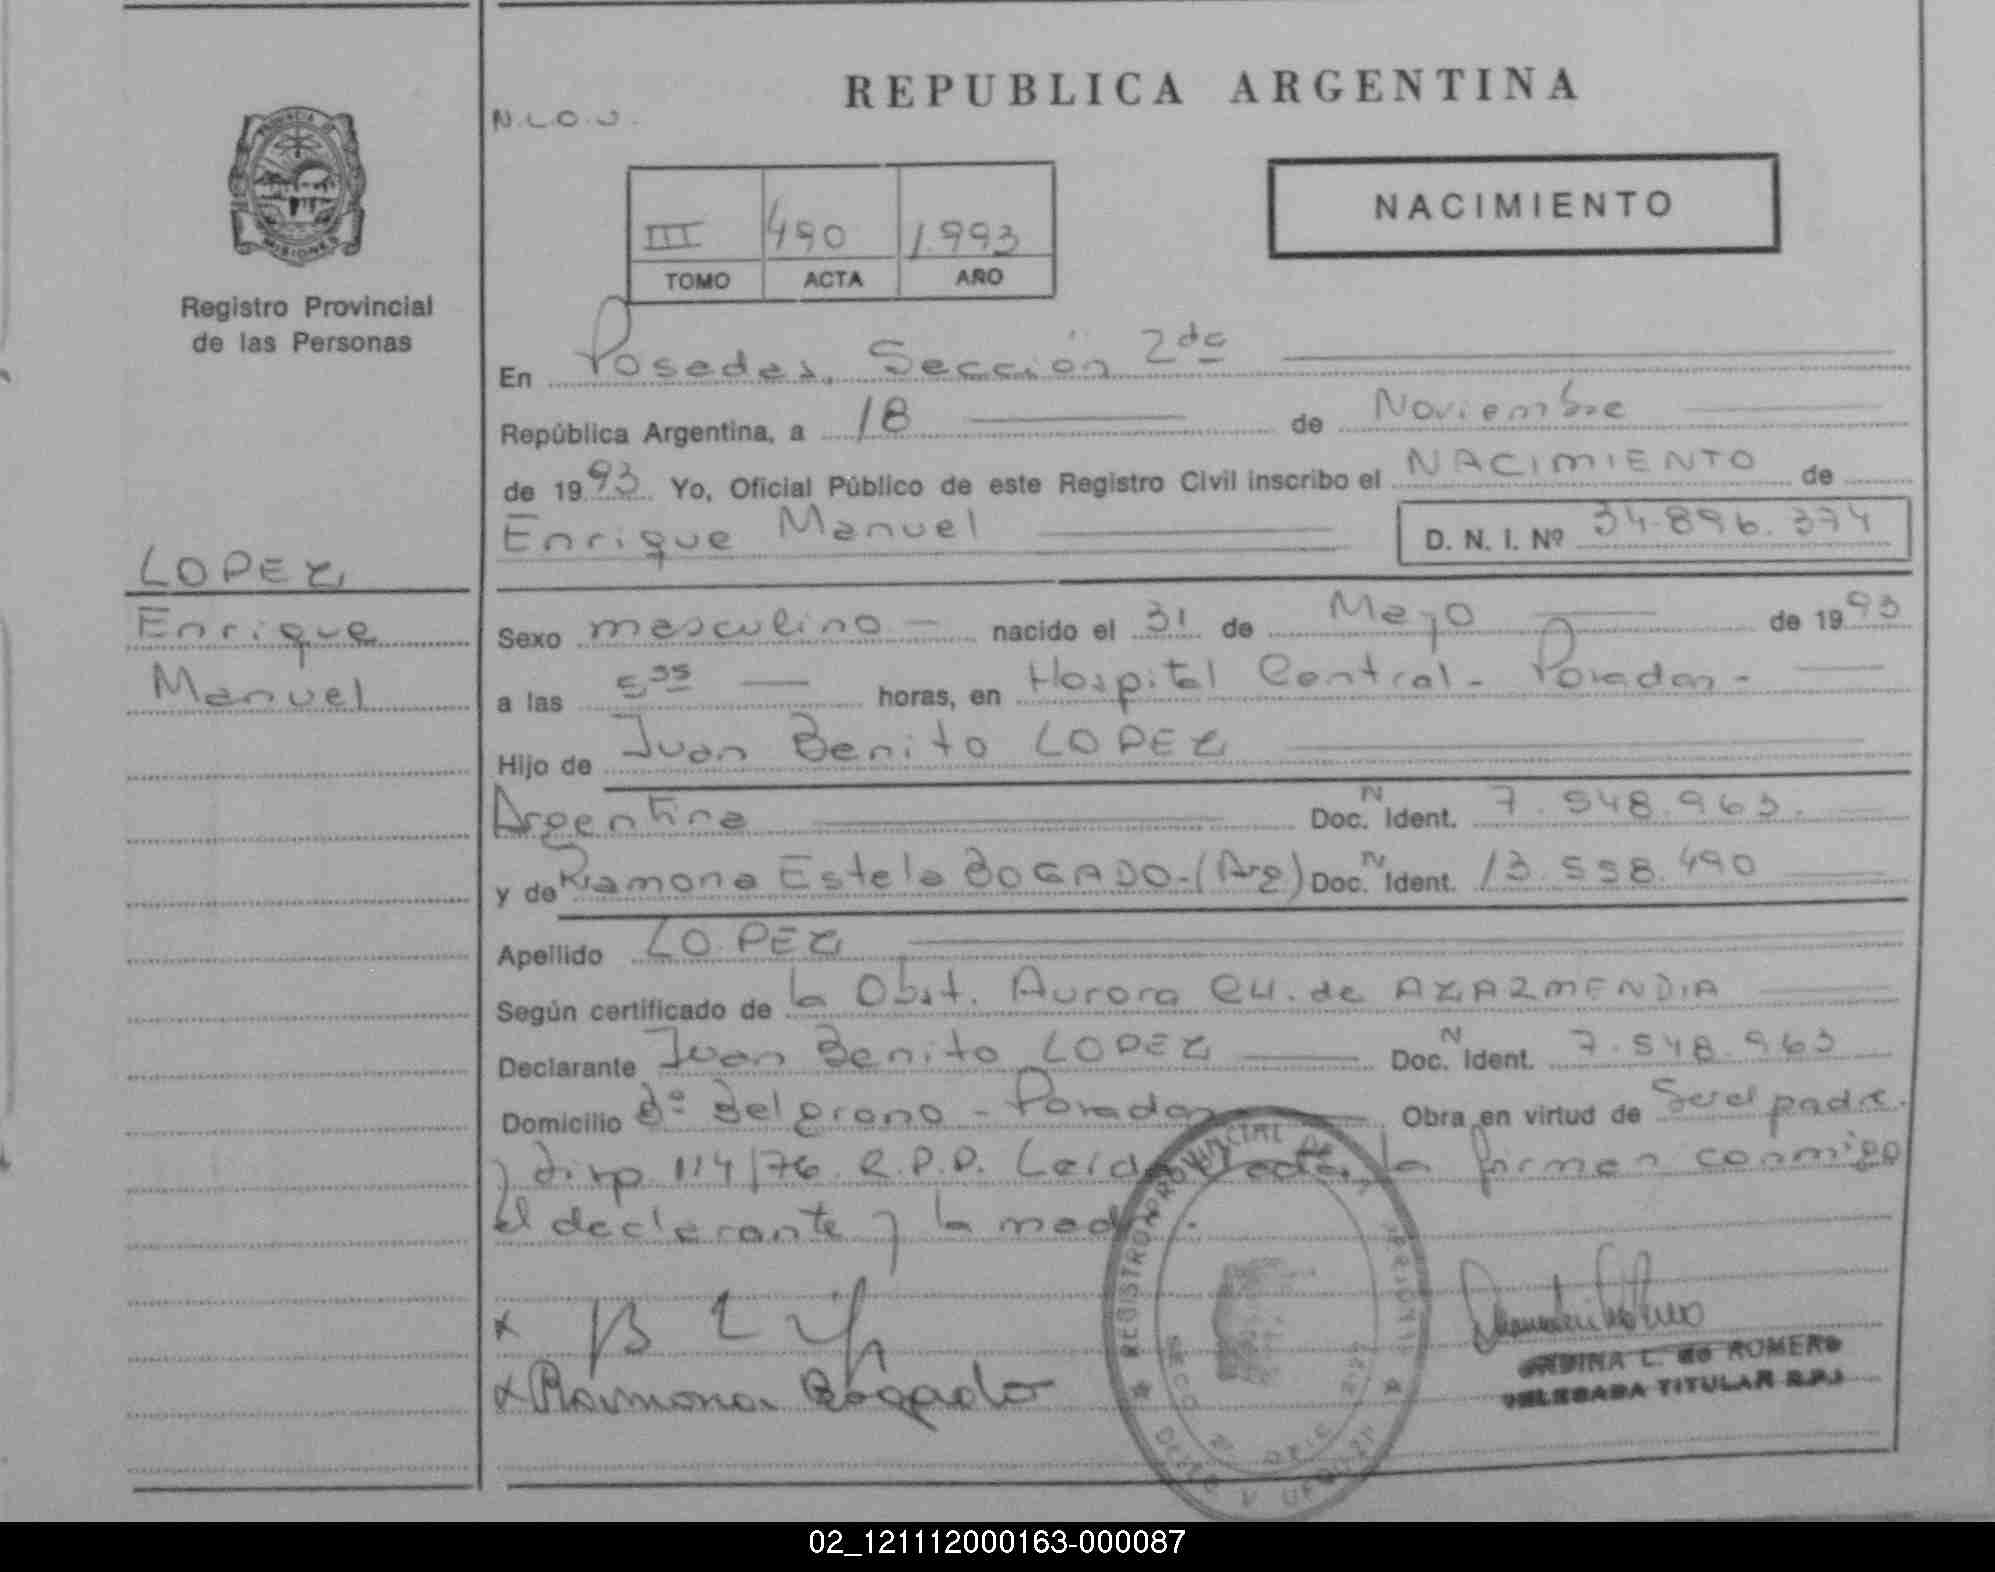 REPUBLICA ARGENTINA
N.L.O.U.
NACIMIENTO
III 490 1.993
TOMO ACTA AÑO
PROVINCIA DE
MISIONES
Registro Provincial
de las Personas
En Posadas, Sección 2da
República Argentina, a 18 de Noviembre
de 1993 Yo, Oficial Público de este Registro Civil inscribo el NACIMIENTO de
Enrique Manuel D. N. I. Nº 34.896.374
LOPEZ
Enrique
Manuel
Sexo masculino nacido el 31 de Mayo de 1993
a las 5 35 horas, en Hospital Central - Posadas -
Hijo de Juan Benito LOPEZ
Argentina Doc. N Ident. 7.548.963.
y de Ramona Estela BOGADO-(Arg) Doc. N Ident. 13.558.490
Apellido LOPEZ
Según certificado de la Obst. Aurora CH. de AZARMENDIA
Declarante Juan Benito LOPEZ Doc. N Ident. 7.548.963
Domicilio Bº Belgrano - Posadas Obra en virtud de Ser el padre.
y disp. 114/76 R.P.P. Leída el acta, la firman conmigo
el declarante y la madre.
x
x Ramona Bogado
REGISTRO PROVINCIAL DE LAS PERSONAS
L. de ROMERO
DELEGADA TITULAR R.P.P.
02_121112000163-000087